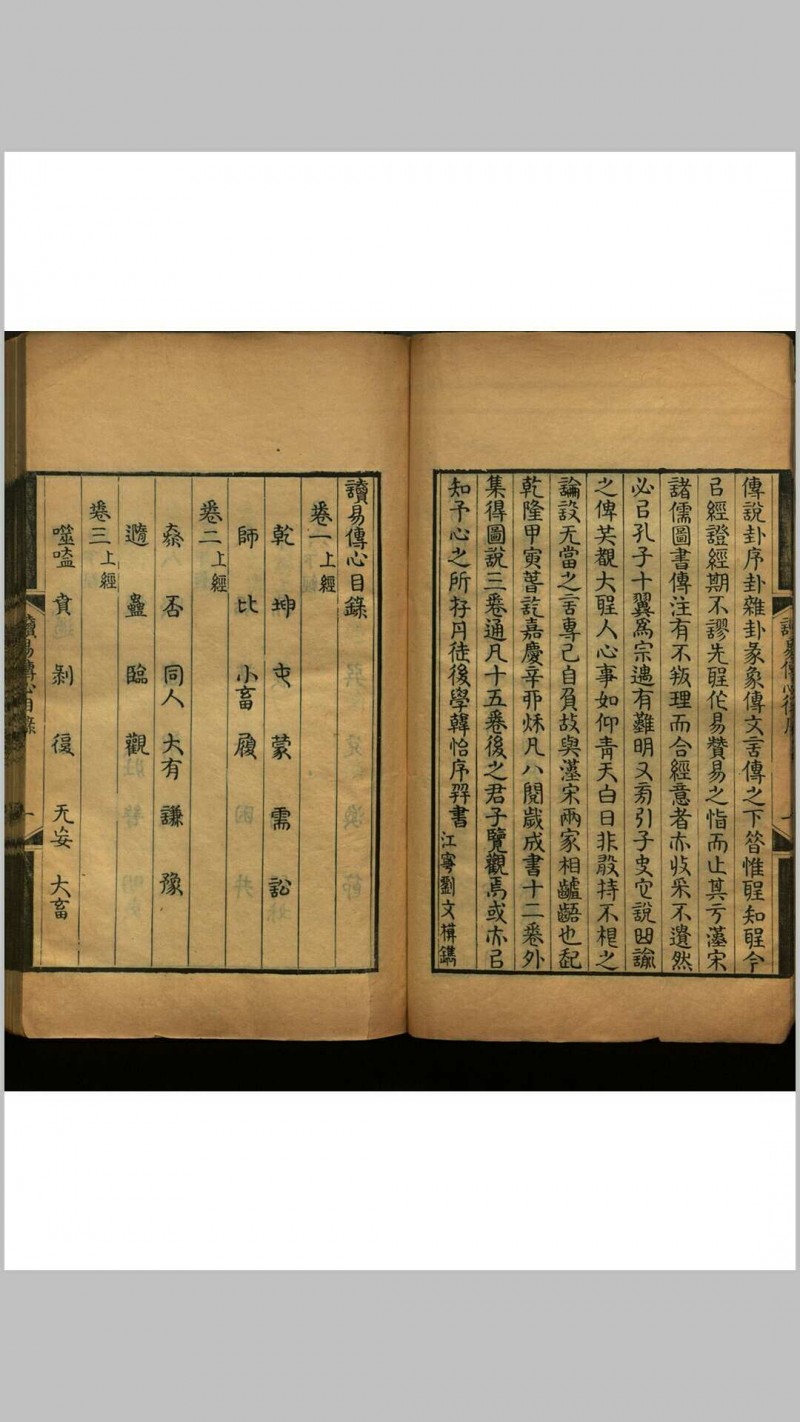 傳說卦序卦雜卦彖象傳文言傳之下簮惟聖知聖今
㠯經證經期不謬先聖作易贊易之恉而止其亏漢宋
諸儒圖書傳注有不叛理而合經意者亦收采不遺然
必㠯孔子十翼爲宗遇有難明又㫄引子史它說曲諭
之俾共覩大聖人心事如仰青天白日非敢持不根之
論設无當之言專己自負故與漢宋兩家相齟齬也起
乾隆甲寅曹訖嘉慶辛丣秌凡八閱歲成書十二卷外
集得圖說三卷通凡十五卷後之君子覽觀焉或亦㠯
知予心之所存丹徒後學韓怡序并書
江寧劉文楷鐫
讀易傳心後序
讀易傳心目錄
卷一 上經
乾 坤 屯 蒙 需 訟
師 比 小畜 履
卷二 上經
泰 否 同人 大有 謙 豫
隨 蠱 臨 觀
卷三 上經
噬嗑 賁 剝 復 无妄 大畜
讀易傳心目錄 一